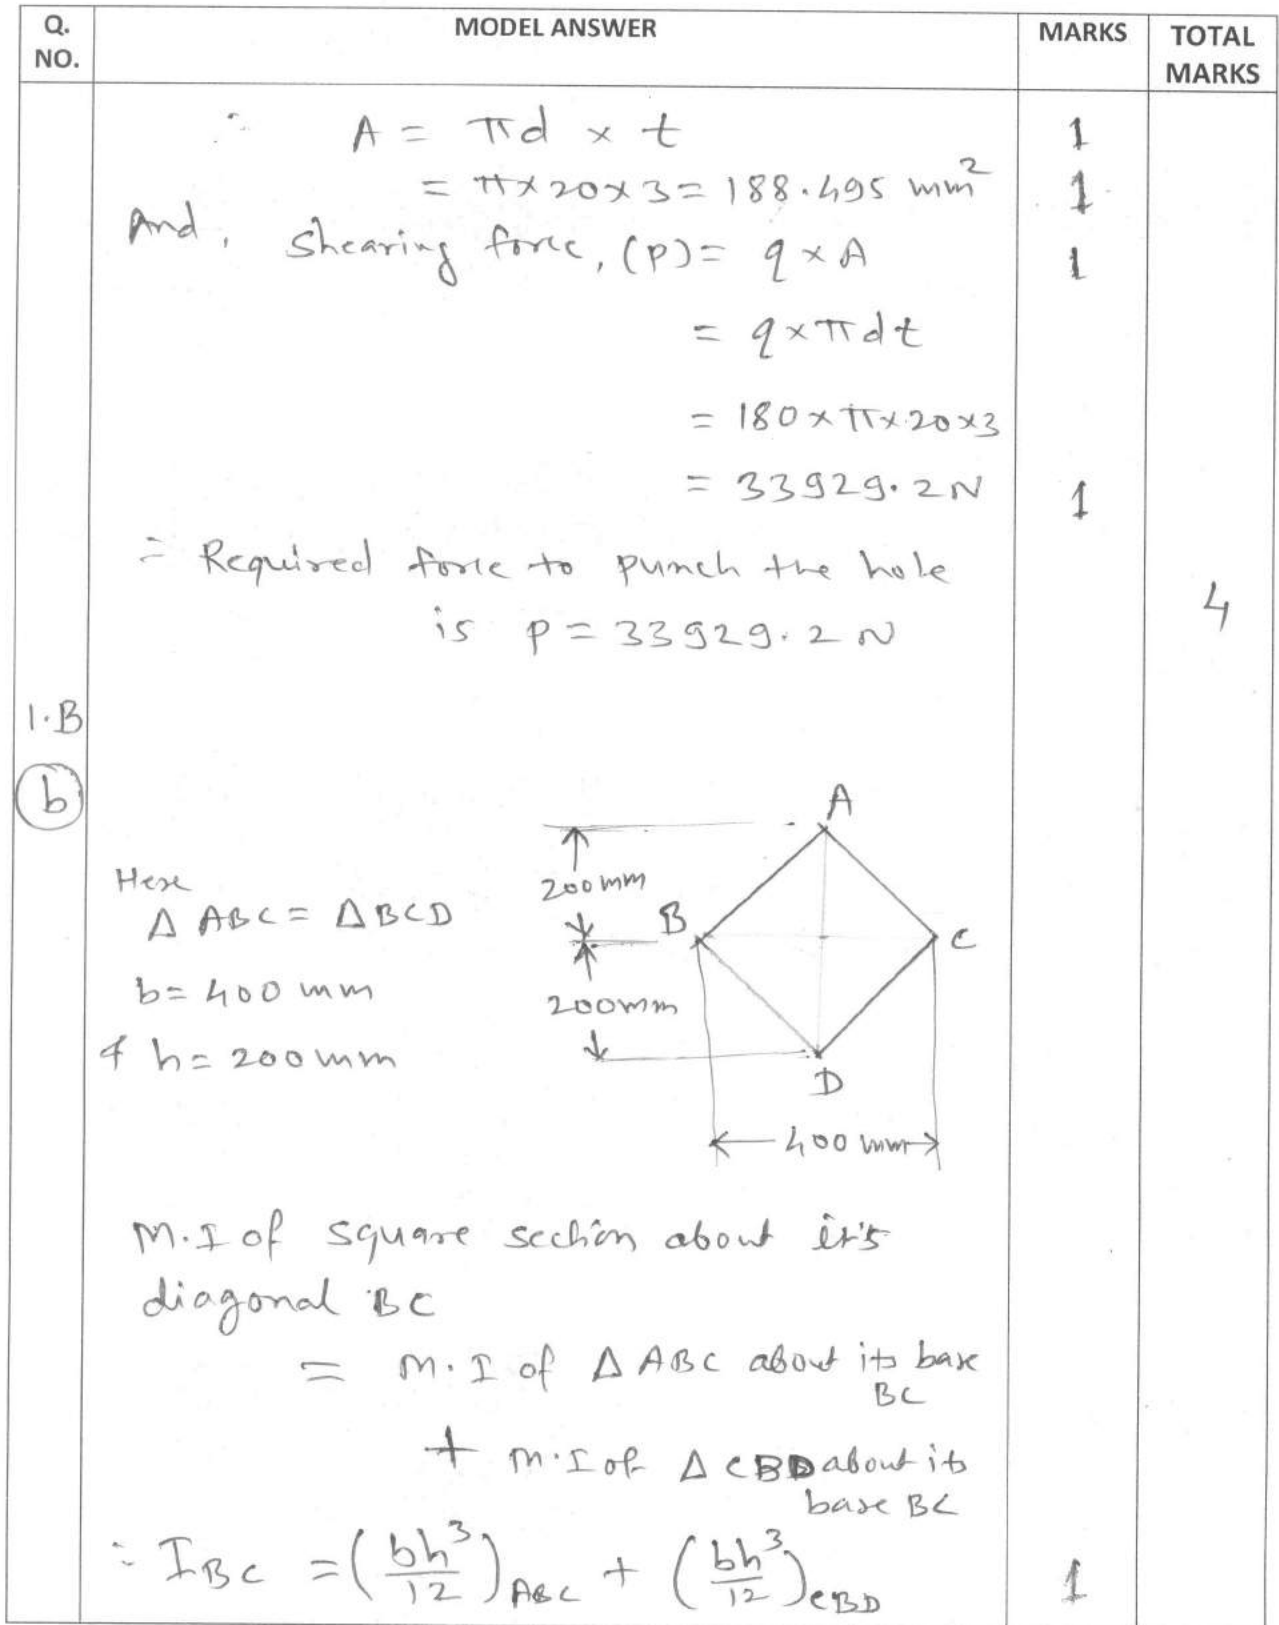 Q. NO. MODEL ANSWER MARKS TOTAL MARKS
∴ A = πd × t 1
= π×20×3 = 188.495 mm² 1
And, Shearing force, (p) = q × A 1
= q×πdt
= 180×π×20×3
= 33929.2N 1
∴ Required force to punch the hole
is p = 33929.2 N
4
1.B
b
A
Here
200mm
Δ ABC = Δ BCD
B
C
b = 400 mm
200mm
& h = 200mm
D
400 mm
M.I of square section about it's
diagonal BC
= M.I of Δ ABC about its base
BC
+ M.I of Δ CBD about its
base BC
∴ I_BC = (bh³/12)_ABC + (bh³/12)_CBD 1